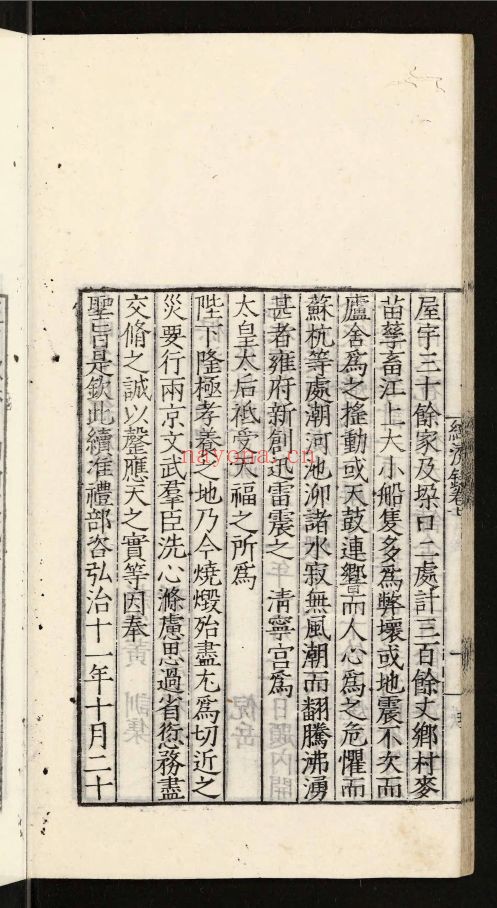 屋宇三十餘家及垜口二處計三百餘丈鄉村麥
苗孳畜江上大小船隻多爲弊壞或地震不欠而
廬舍爲之搖動或天鼓連響而人心爲之危懼而
蘇杭等處潮河池泖諸水寂無風潮而翻騰沸湧
甚者雍府新創迅雷震之 清寧宮爲
太皇太后祇受天福之所爲
陛下隆極孝養之地乃今燒燬殆盡尤爲切近之
災要行兩京文武羣臣洗心滌慮思過省愆務盡
交脩之誠以罄應天之實等因奉
聖旨是欽此續准禮部咨弘治十一年十月二十
nayona.cn